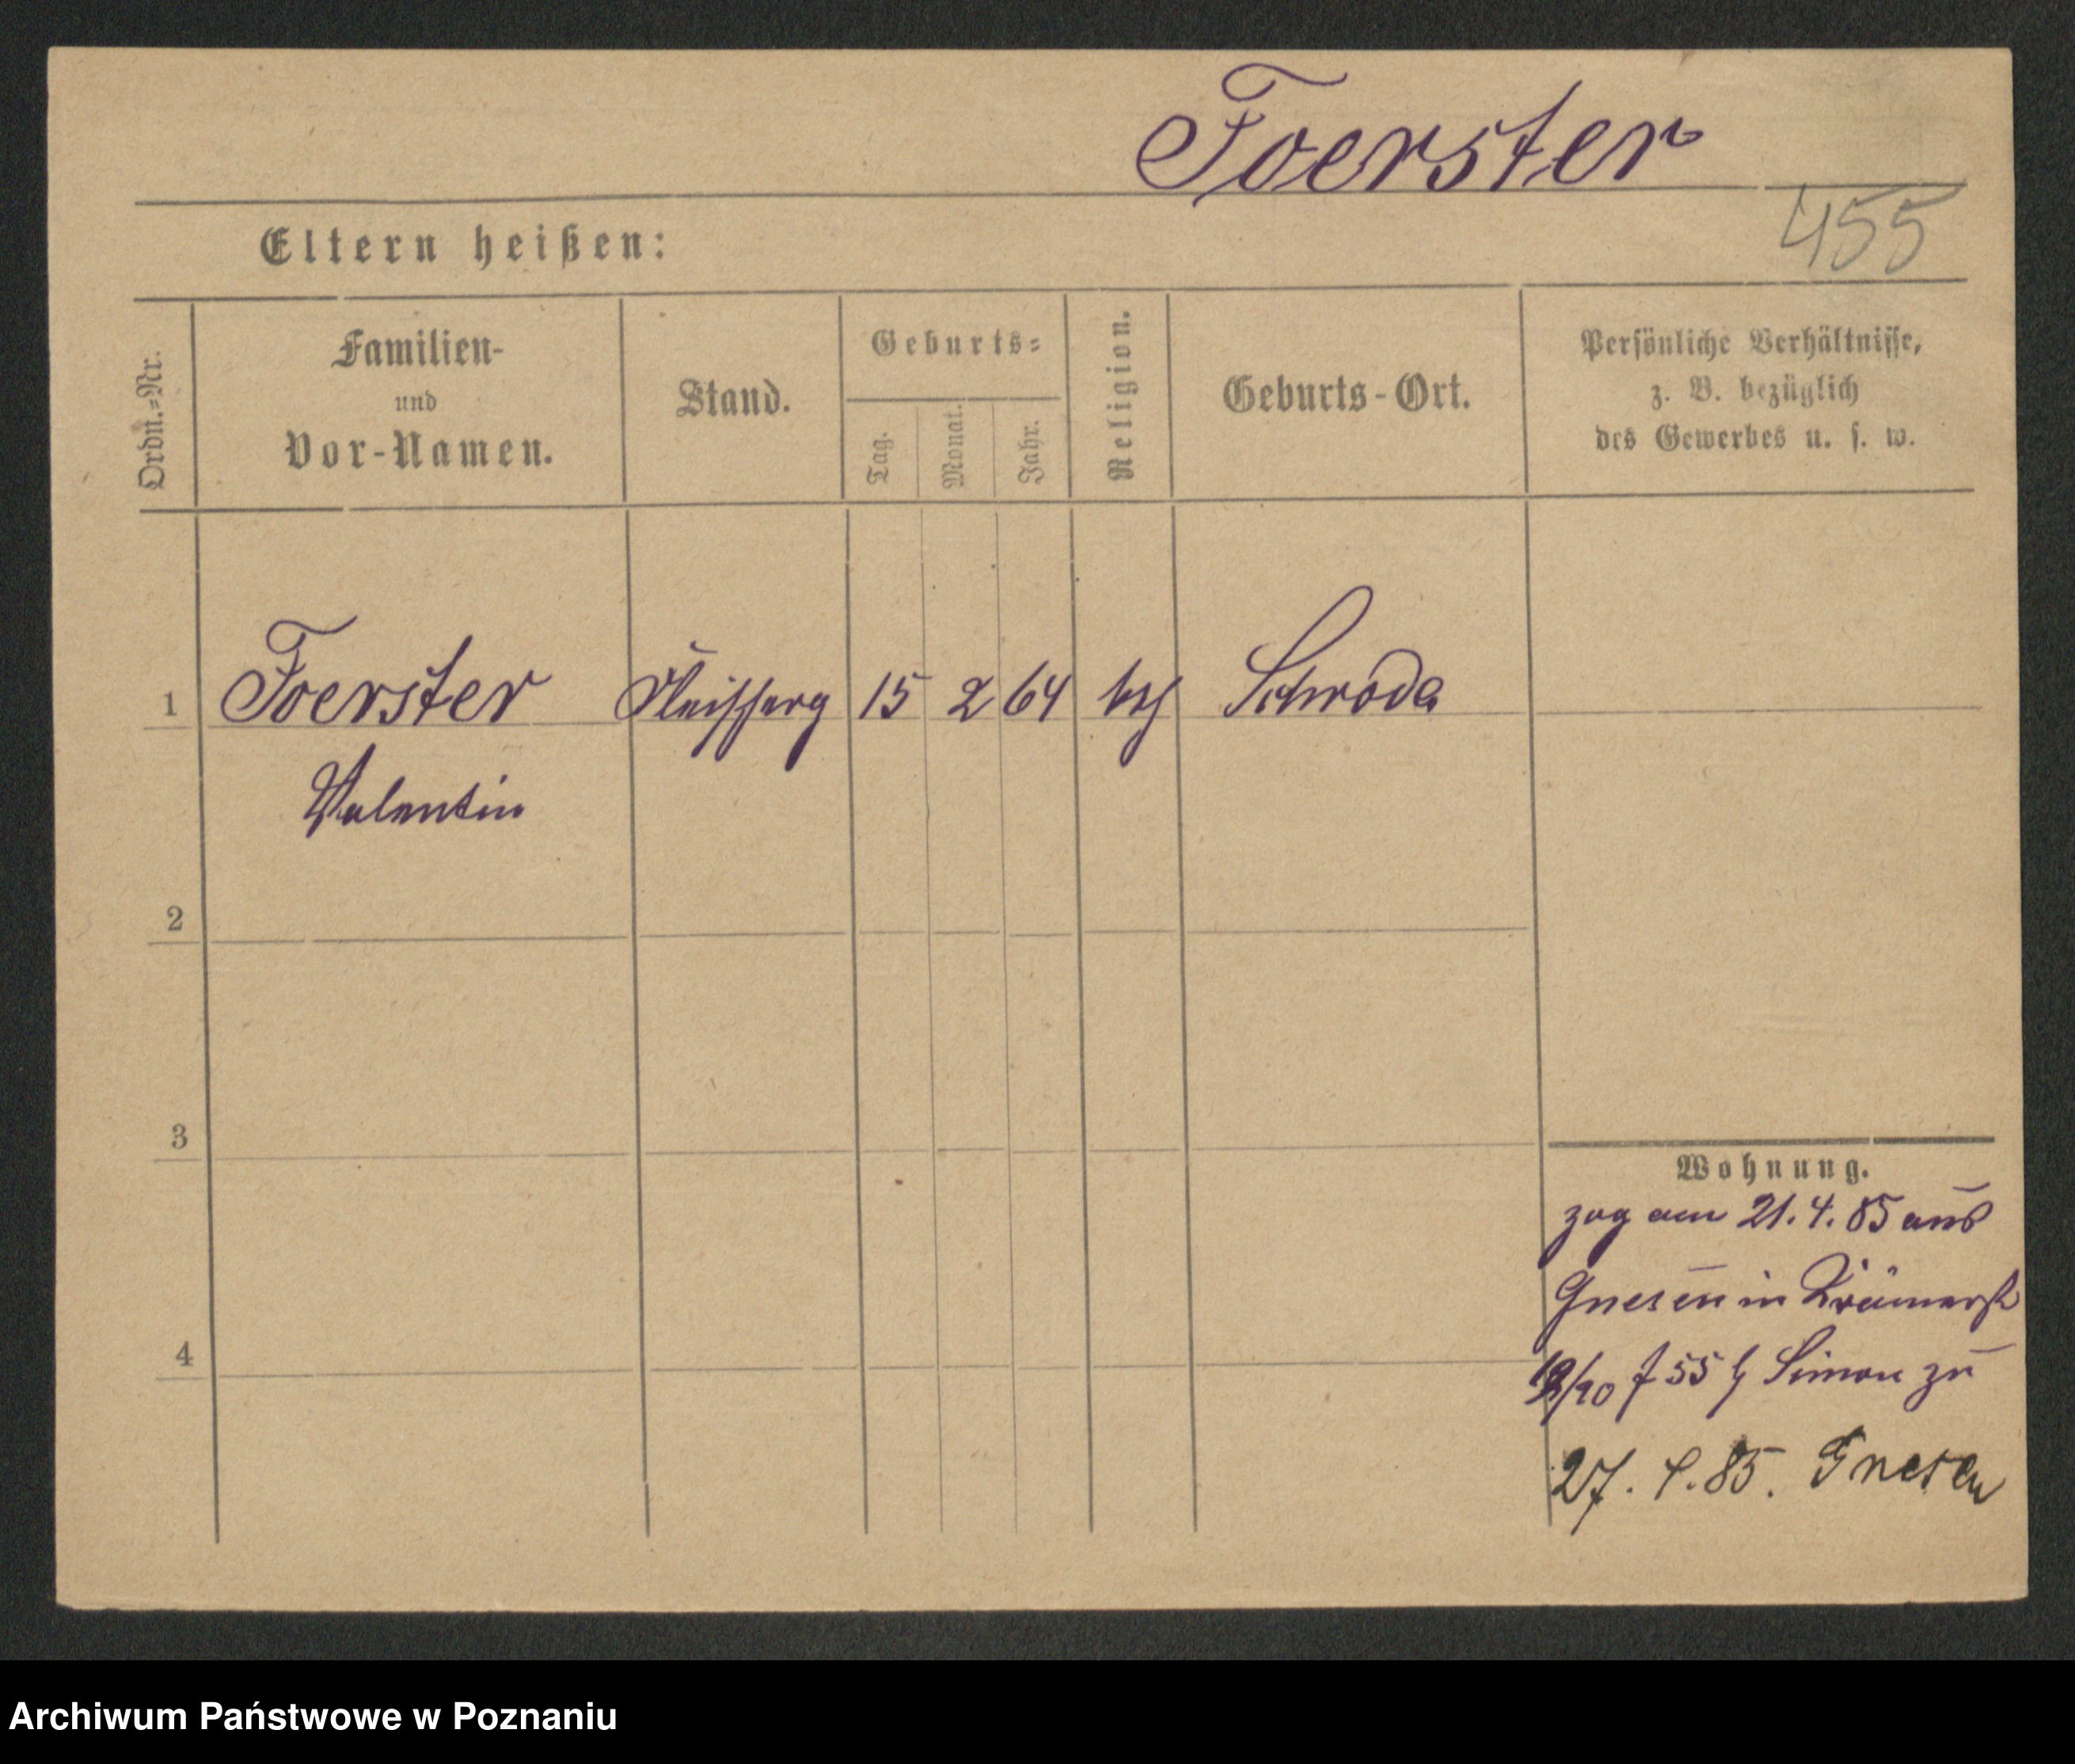 Foerster
455
Eltern heißen:
Ordn.=Nr.
Familien-
und
Vor-Namen.
Stand.
Geburts=
Tag.
Monat.
Jahr.
Religion.
Geburts-Ort.
Persönliche Verhältnisse,
z. B. bezüglich
des Gewerbes u. s. w.
1 Foerster 15 2 64 Schroda
Valentin
2
3
4
Wohnung.
zog am 21. 4. 85 aus
Gnesen in Krämerst
55 Simon zu
27. 4. 85. Gnesen
Archiwum Państwowe w Poznaniu